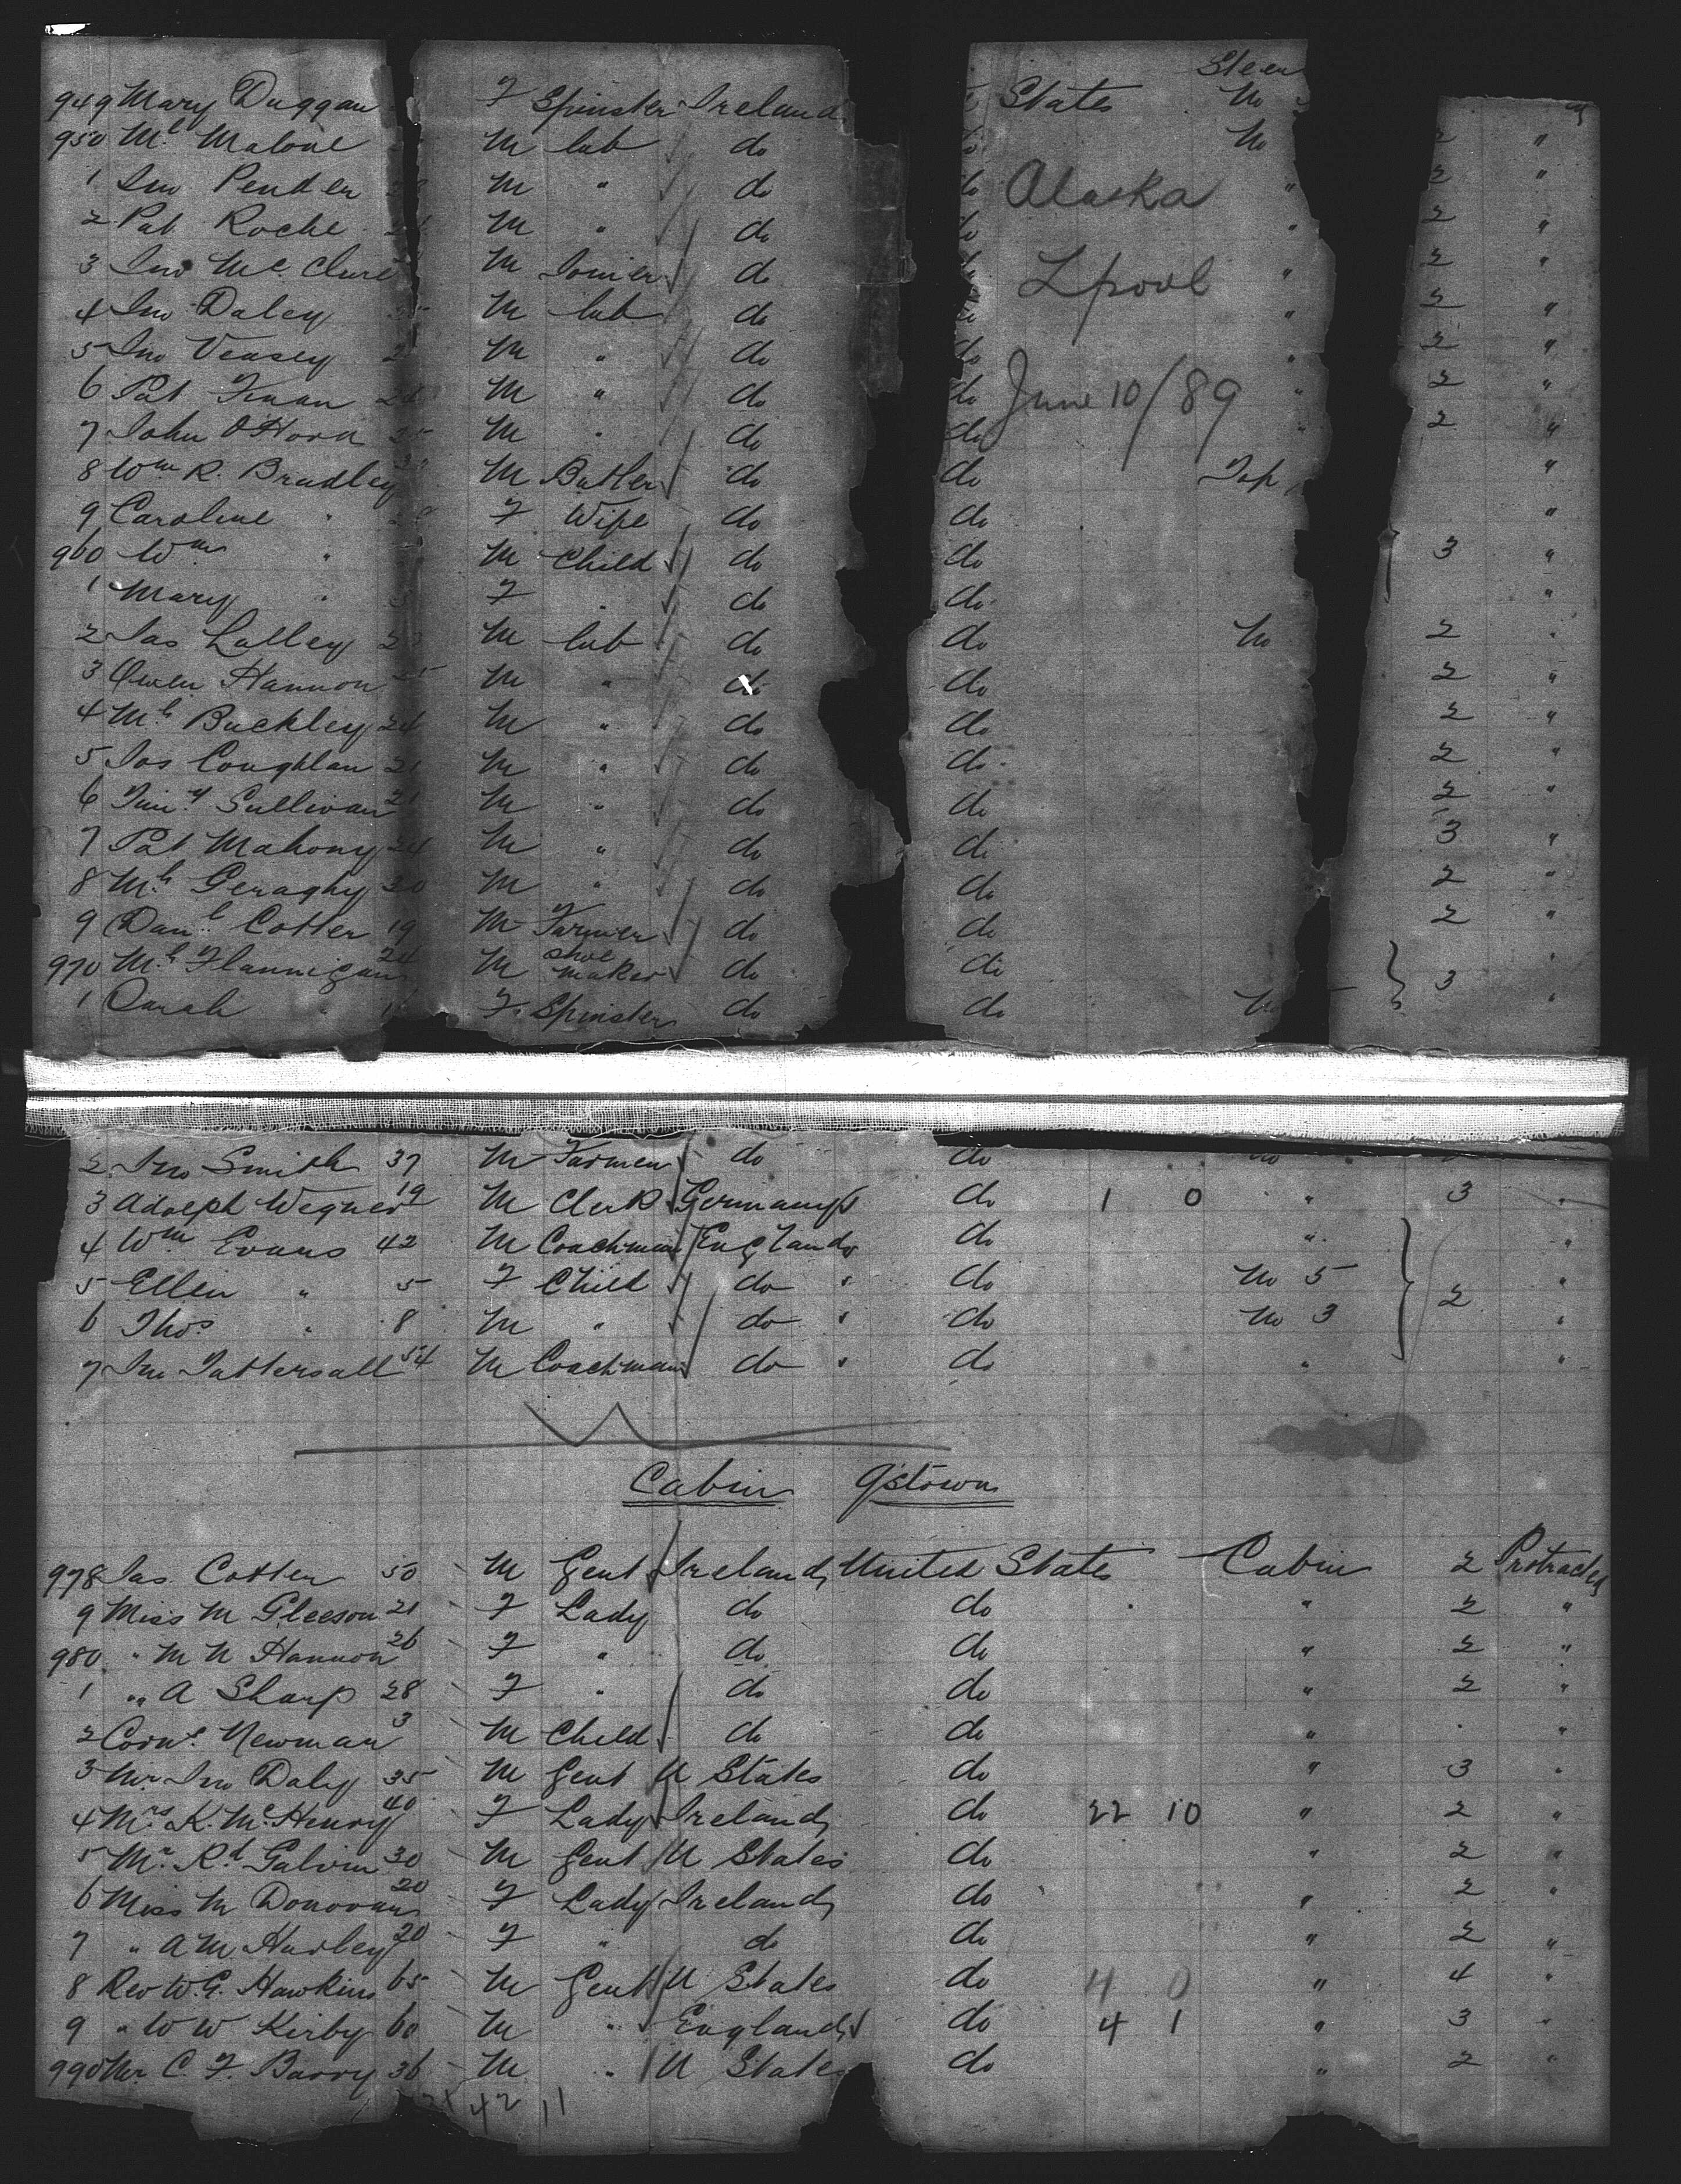 Steer
949 Mary Duggan F Spinster Ireland States No
950 Ml Malone M lab do No 2 "
1 Jno Pender M " do do " 2 "
Alaska
2 Pat Roche M " do do " 2 "
3 Jno Mc Clure M Joiner do do " 2 "
Lpool
4 Jno Daley 25 M lab do do " 2 "
5 Jno Veasey M " do do " 2 "
6 Pat M " do do " 2 "
June 10/89
7 John O'Hora 25 M " do do " 2 "
8 Wm R. Bradley M Butler do do Top "
9 Caroline " F Wife do do "
960 Wm " M Child do do 3 "
1 Mary " F " do do "
2 Jas Lalley M lab do do No 2 "
3 Owen Hannon M " do do 2 "
4 Ml Buckley 24 M " do do 2 "
5 Jos Coughlan 21 M " do do 2 "
6 Timy Sullivan 21 M " do do 2 "
7 Pat Mahony 24 M " do do 3 "
8 Ml Geraghy 20 M " do do 2 "
9 Danl Cotter 19 M Farmer do do 2 "
970 Ml Flannigan 24 M shoe maker do do 3 "
1 Sarah " F Spinster do do "
2 Jno Smith 37 M Farmer do do No
3 Adolph Wegner 19 M Clerk Germany do 1 0 " 3 "
4 Wm Evans 42 M Coachman England do " "
5 Ellen " 5 F Child do " do No 5 2 "
6 Thos " 8 M " do " do No 3 "
7 Jno Tattersall 54 M Coachman do " do " "
Cabin Qstown
978 Jas Cotter 50 M Gent Ireland United States Cabin 2 Protracted
9 Miss M Gleeson 21 F Lady do do " 2 "
980 " M N Hannon 26 F " do do " 2 "
1 " A Sharp 28 F " do do " 2 "
2 Corns. Newman 3 M Child do do " "
3 Mr Jno Daly 35 M Gent U States do " 3 "
4 Mrs K. McHenry 40 F Lady Ireland do 22 10 " 2 "
5 Mr. Rd Galvin 30 M Gent U States do " 2 "
6 Miss M Donovan 20 F Lady Ireland do " 2 "
7 " A M Hurley 20 F " do do " 2 "
8 Rev W. G. Hawkins 65 M Gent U States do 4 0 " 4 "
9 " W W Kirby 60 M " England do 4 1 " 3 "
990 Mr. C. F. Barry 36 M " U States do " 2 "
42 11